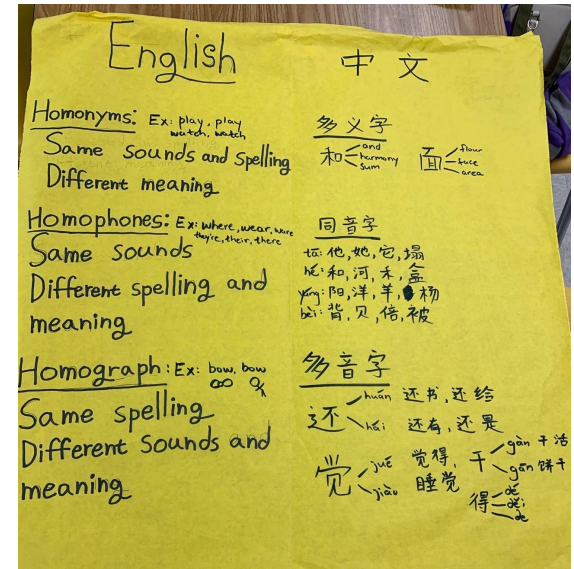 English
Homonyms: Ex: play, play
watch, watch
Same sounds and spelling
Different meaning
Homophones: Ex: where, wear, ware
they're, their, there
Same sounds
Different spelling and
meaning
Homograph: Ex: bow, bow
Same spelling
Different sounds and
meaning
中文
多义字
和 and
harmony
sum
面 flour
face
area
同音字
tā: 他, 她, 它, 塌
hé: 和, 河, 禾, 盒
yáng: 阳, 洋, 羊, 杨
bèi: 背, 贝, 倍, 被
多音字
还 huán 还书, 还给
hái 还有, 还是
觉 jué 觉得,
jiào 睡觉
干 gàn 干活
gān 饼干
得 dé
děi
de